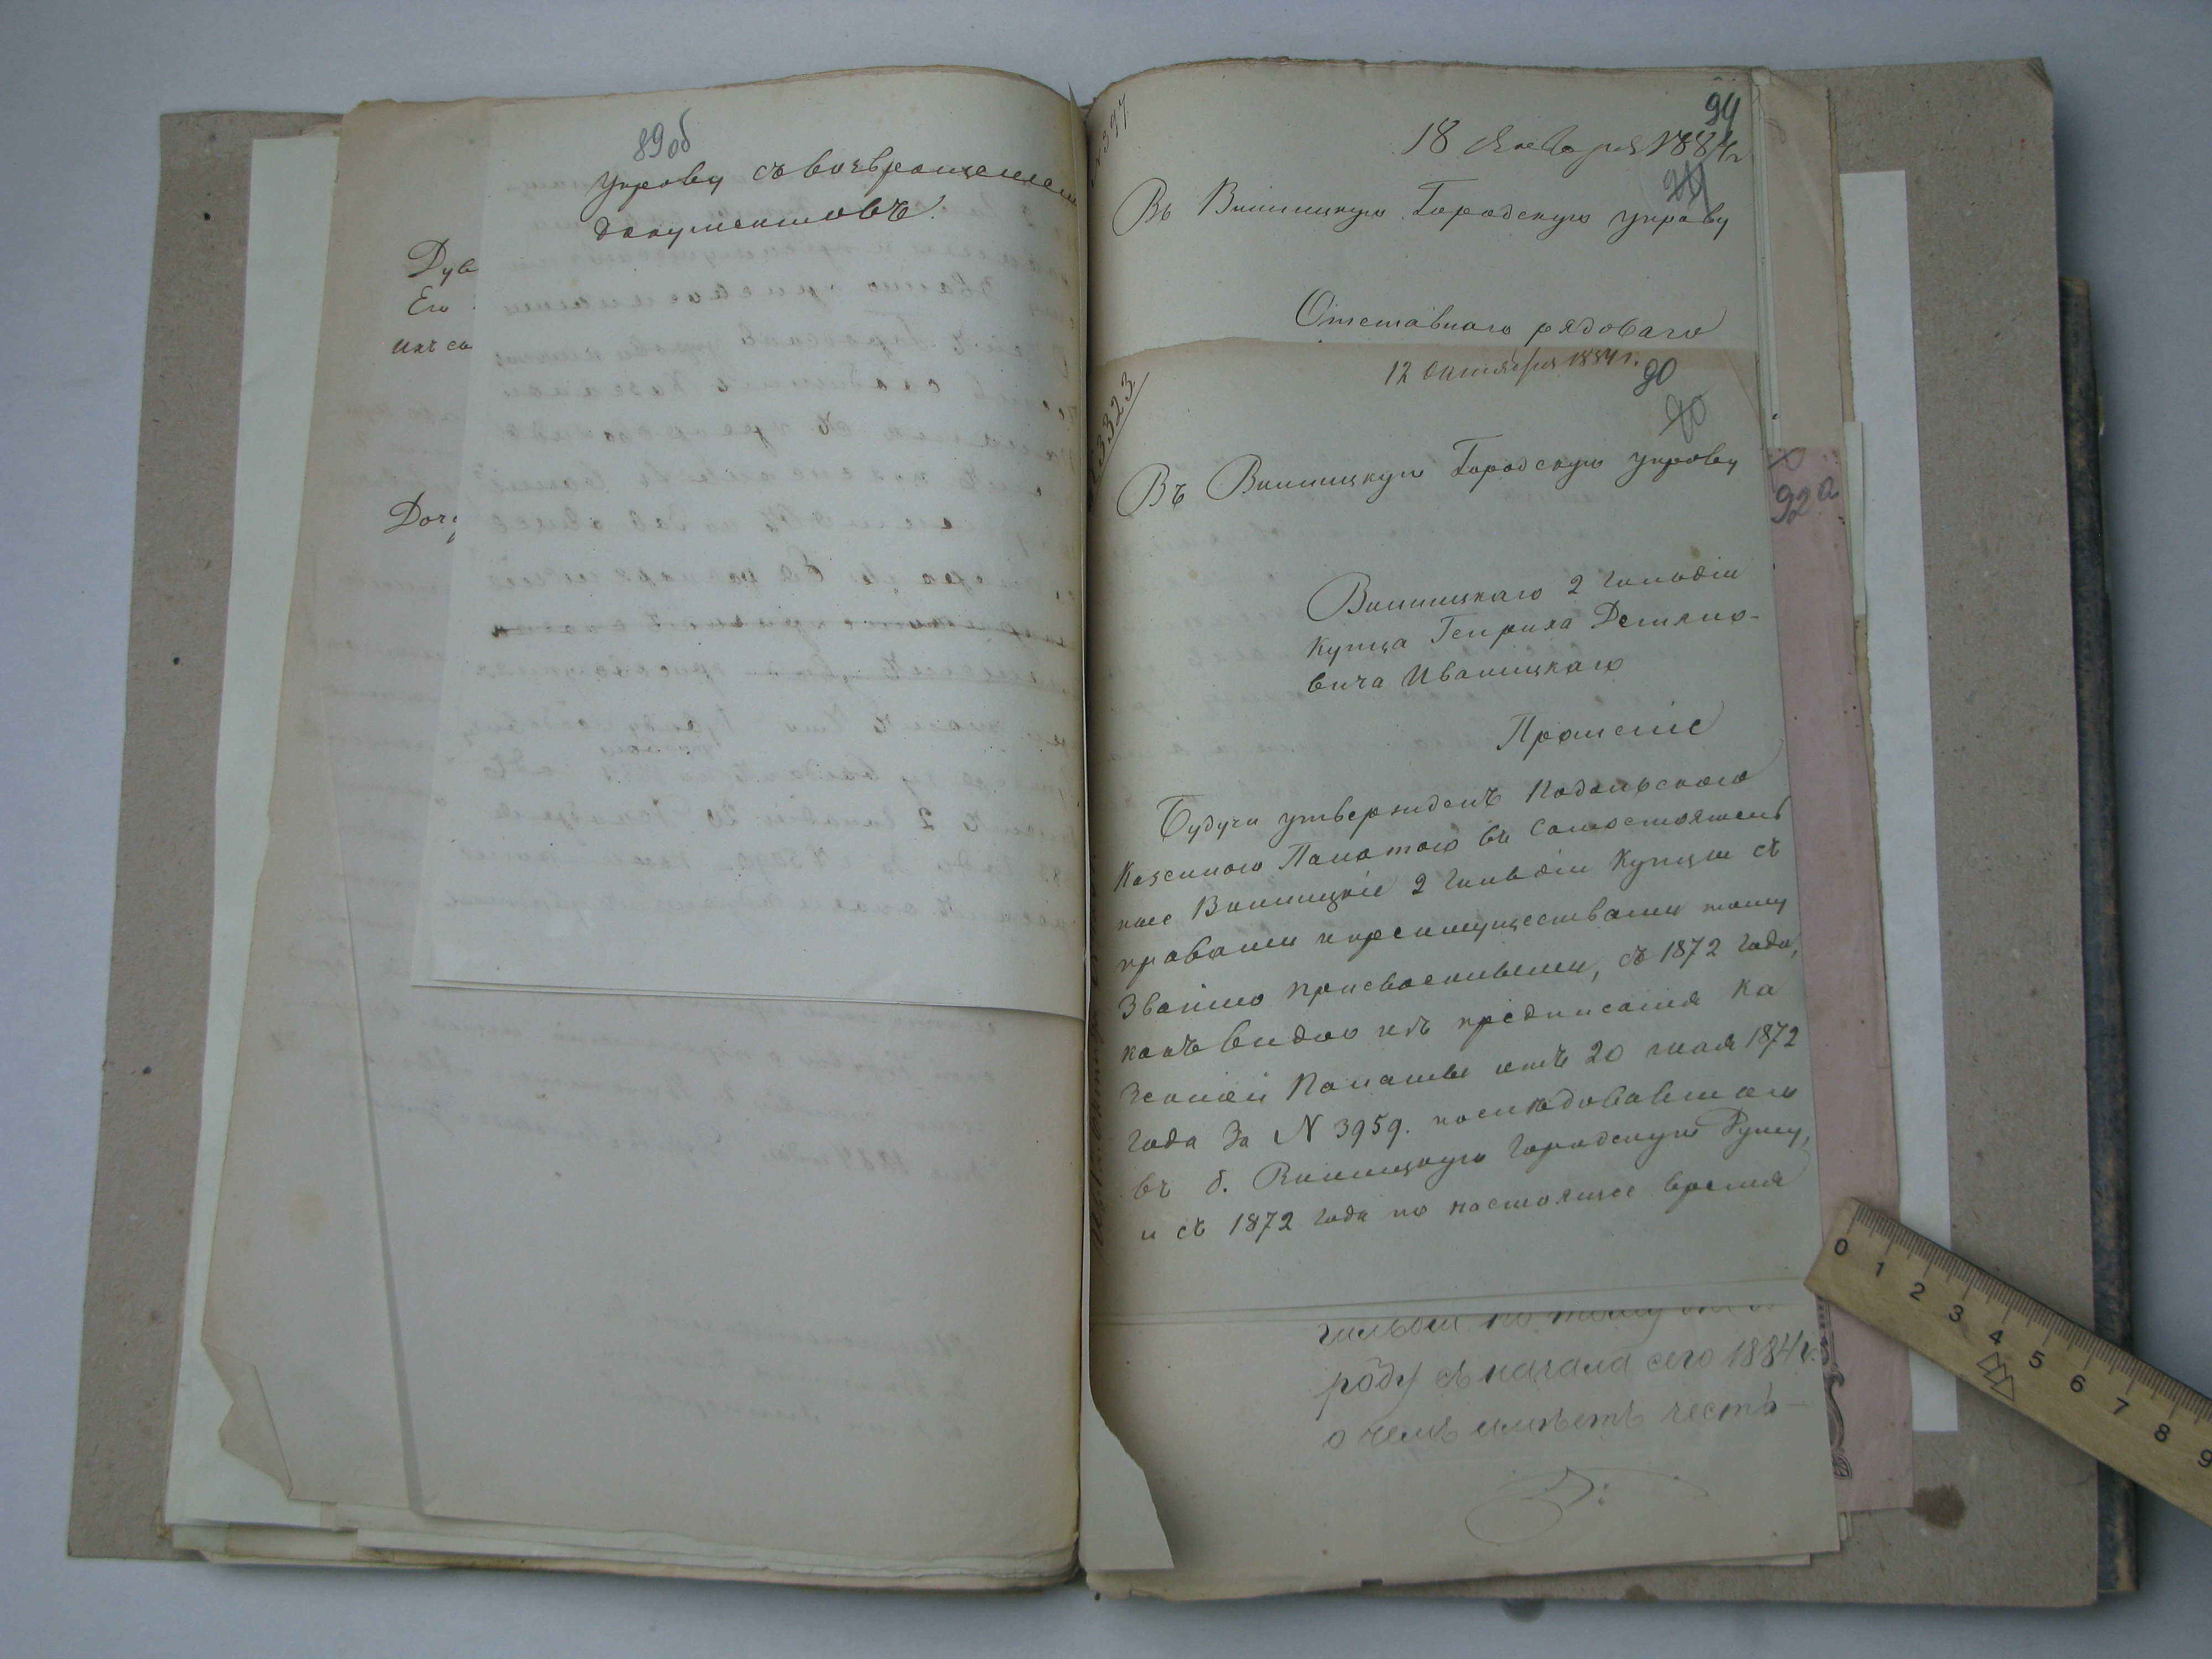 89 об
управу съ возвращеніем
документовъ.
Дув
Его
Доч
№ 397
94
18 Января 1884 г.
Въ Винницкую Городскую управу
Отставнаго рядоваго
3323
12 октября 1884 г.
90
Въ Винницкую Городскую управу
Винницкаго 2 гильдіи
купца Генриха
вича Иваницкаго
Прошеніе
Будучи утвержденъ Подольскою
Казенною Палатою въ самостоятель
ные Винницкіе 2 гильдіи купцы съ
правами и преимуществами тому
званію присвоенными, съ 1872 года,
какъ видно изъ предписанія Ка
зенной Палаты отъ 20 мая 1872
года за N 3959. последовавшаго
въ б. Винницкую Городскую Думу,
и съ 1872 года по настоящее время
92а
роду съ начала сего 1884 г.
о чемъ имѣетъ честь
0 1 2 3 4 5 6 7 8 9